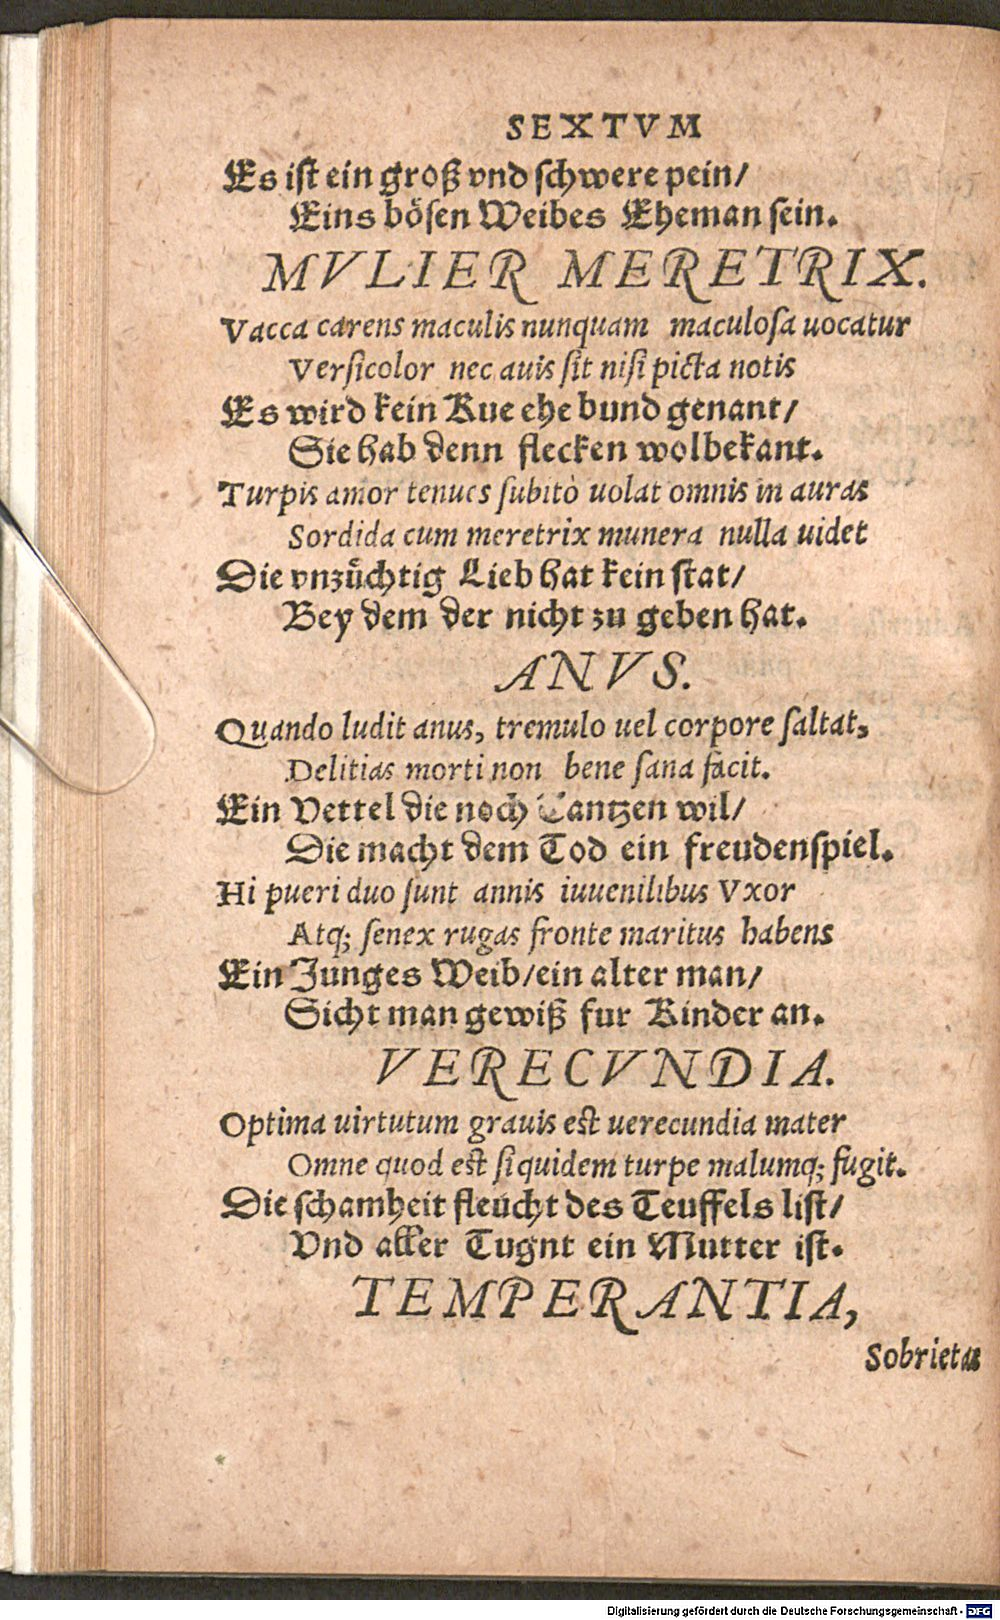 SEXTVM
Es iſt ein groß vnd ſchwere pein/
Eins boͤſen Weibes Eheman ſein.
MVLIER MERETRIX.
Vacca carens maculis nunquam maculoſa uocatur
Verſicolor nec auis ſit niſi picta notis
Es wird kein Kue ehe bund genant/
Sie hab denn flecken wolbekant.
Turpis amor tenues ſubitò uolat omnis in auras
Sordida cum meretrix munera nulla uidet
Die vnzuͤchtig Lieb hat kein ſtat/
Bey dem der nicht zu geben hat.
ANVS.
Quando ludit anus, tremulo uel corpore ſaltat,
Delitias morti non bene ſana facit.
Ein Vettel die noch Tantzen wil/
Die macht dem Tod ein freudenſpiel.
Hi pueri duo ſunt annis iuuenilibus Vxor
Atq; ſenex rugas fronte maritus habens
Ein Junges Weib/ein alter man/
Sicht man gewiß fur Kinder an.
VERECVNDIA.
Optima uirtutum grauis eſt uerecundia mater
Omne quod eſt ſiquidem turpe malumq; fugit.
Die ſchamheit fleucht des Teuffels liſt/
Vnd aller Tugnt ein Mutter iſt.
TEMPERANTIA,
Sobrietas
Digitalisierung gefördert durch die Deutsche Forschungsgemeinschaft - DFG